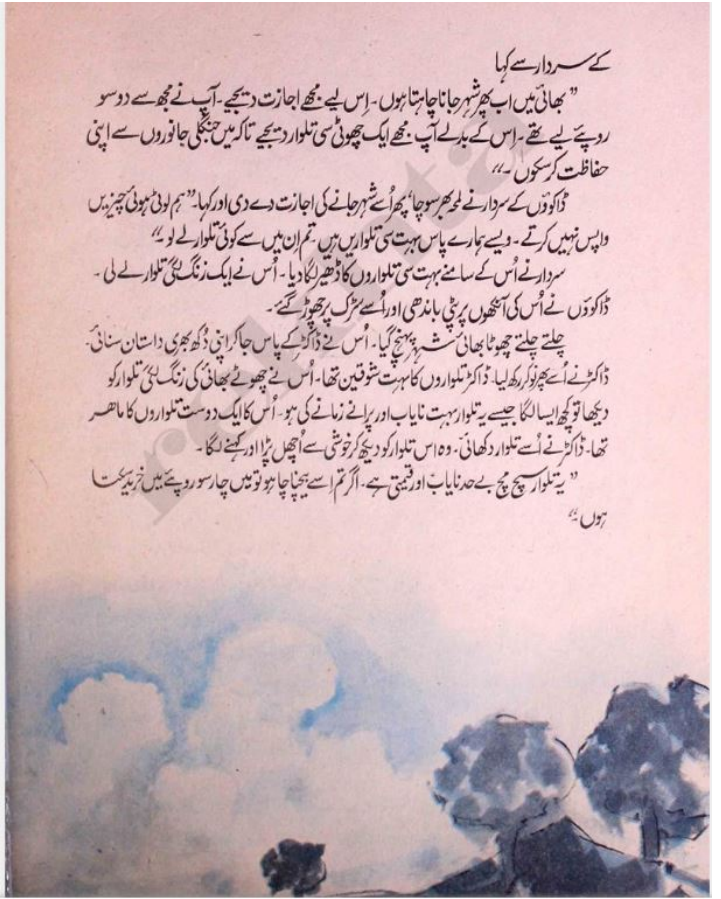 کے سردار سے کہا
” بھائی میں اب پھر شہر جانا چاہتا ہوں۔ اِس لیے مجھے اجازت دیجیے۔ آپ نے مجھ سے دو سو
روپئے لیے تھے۔ اِس کے بدلے آپ مجھے ایک چھوٹی سی تلوار دیجیے تاکہ میں جنگلی جانوروں سے اپنی
حفاظت کر سکوں ۔“
ڈاکوؤں کے سردار نے لمحہ بھر سوچا، پھر اُسے شہر جانے کی اجازت دے دی اور کہا۔ ”ہم لوٹی ہوئی چیزیں
واپس نہیں کرتے ۔ ویسے ہمارے پاس بہت سی تلواریں ہیں۔ تم اِن میں سے کوئی تلوار لے لو ۔“
سردار نے اُس کے سامنے بہت سی تلواروں کا ڈھیر لگا دیا ۔ اُس نے ایک زنگ لگی تلوار لے لی ۔
ڈاکوؤں نے اُس کی آنکھوں پر پٹی باندھی اور اُسے سڑک پر چھوڑ گئے ۔
چلتے چلتے چھوٹا بھائی شہر پہنچ گیا۔ اُس نے ڈاکٹر کے پاس جا کر اپنی دُکھ بھری داستان سنائی۔
ڈاکٹر نے اُسے پھر نوکر رکھ لیا۔ ڈاکٹر تلواروں کا بہت شوقین تھا۔ اُس نے چھوٹے بھائی کی زنگ لگی تلوار کو
دیکھا تو کچھ ایسا لگا جیسے یہ تلوار بہت نایاب اور پرانے زمانے کی ہو۔ اُس کا ایک دوست تلواروں کا ماھر
تھا۔ ڈاکٹر نے اُسے تلوار دکھائی۔ وہ اس تلوار کو دیکھ کر خوشی سے اُچھل پڑا اور کہنے لگا ۔
” یہ تلوار سچ مچ بے حد نایاب اور قیمتی ہے۔ اگر تم اِسے بیچنا چاہو تو میں چار سو روپئے میں خرید سکتا
ہوں۔“
rekhta